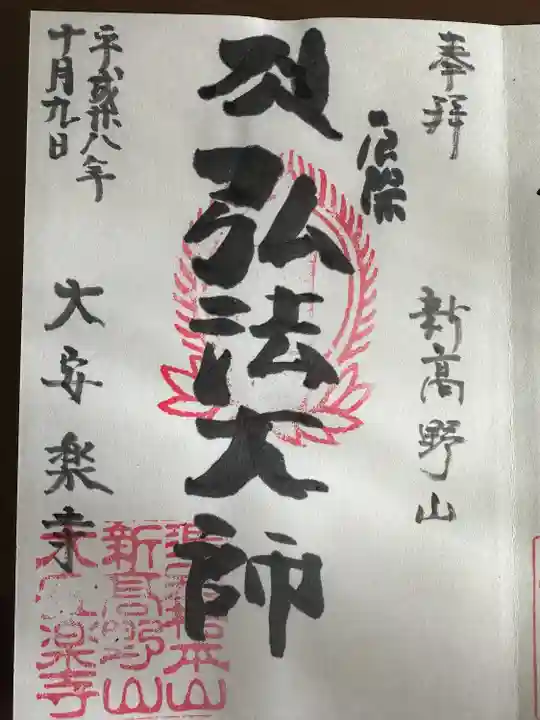 奉拝
新高野山
弘法大師
平成廿八年
十月九日
大安楽寺
新高野山
大安楽寺